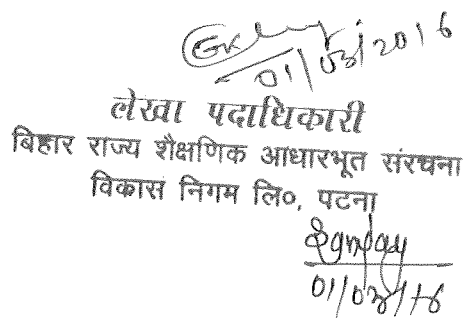 01/03/2016
लेखा पदाधिकारी
बिहार राज्य शैक्षणिक आधारभूत संरचना
विकास निगम लि०, पटना
Sanjay
01/03/16